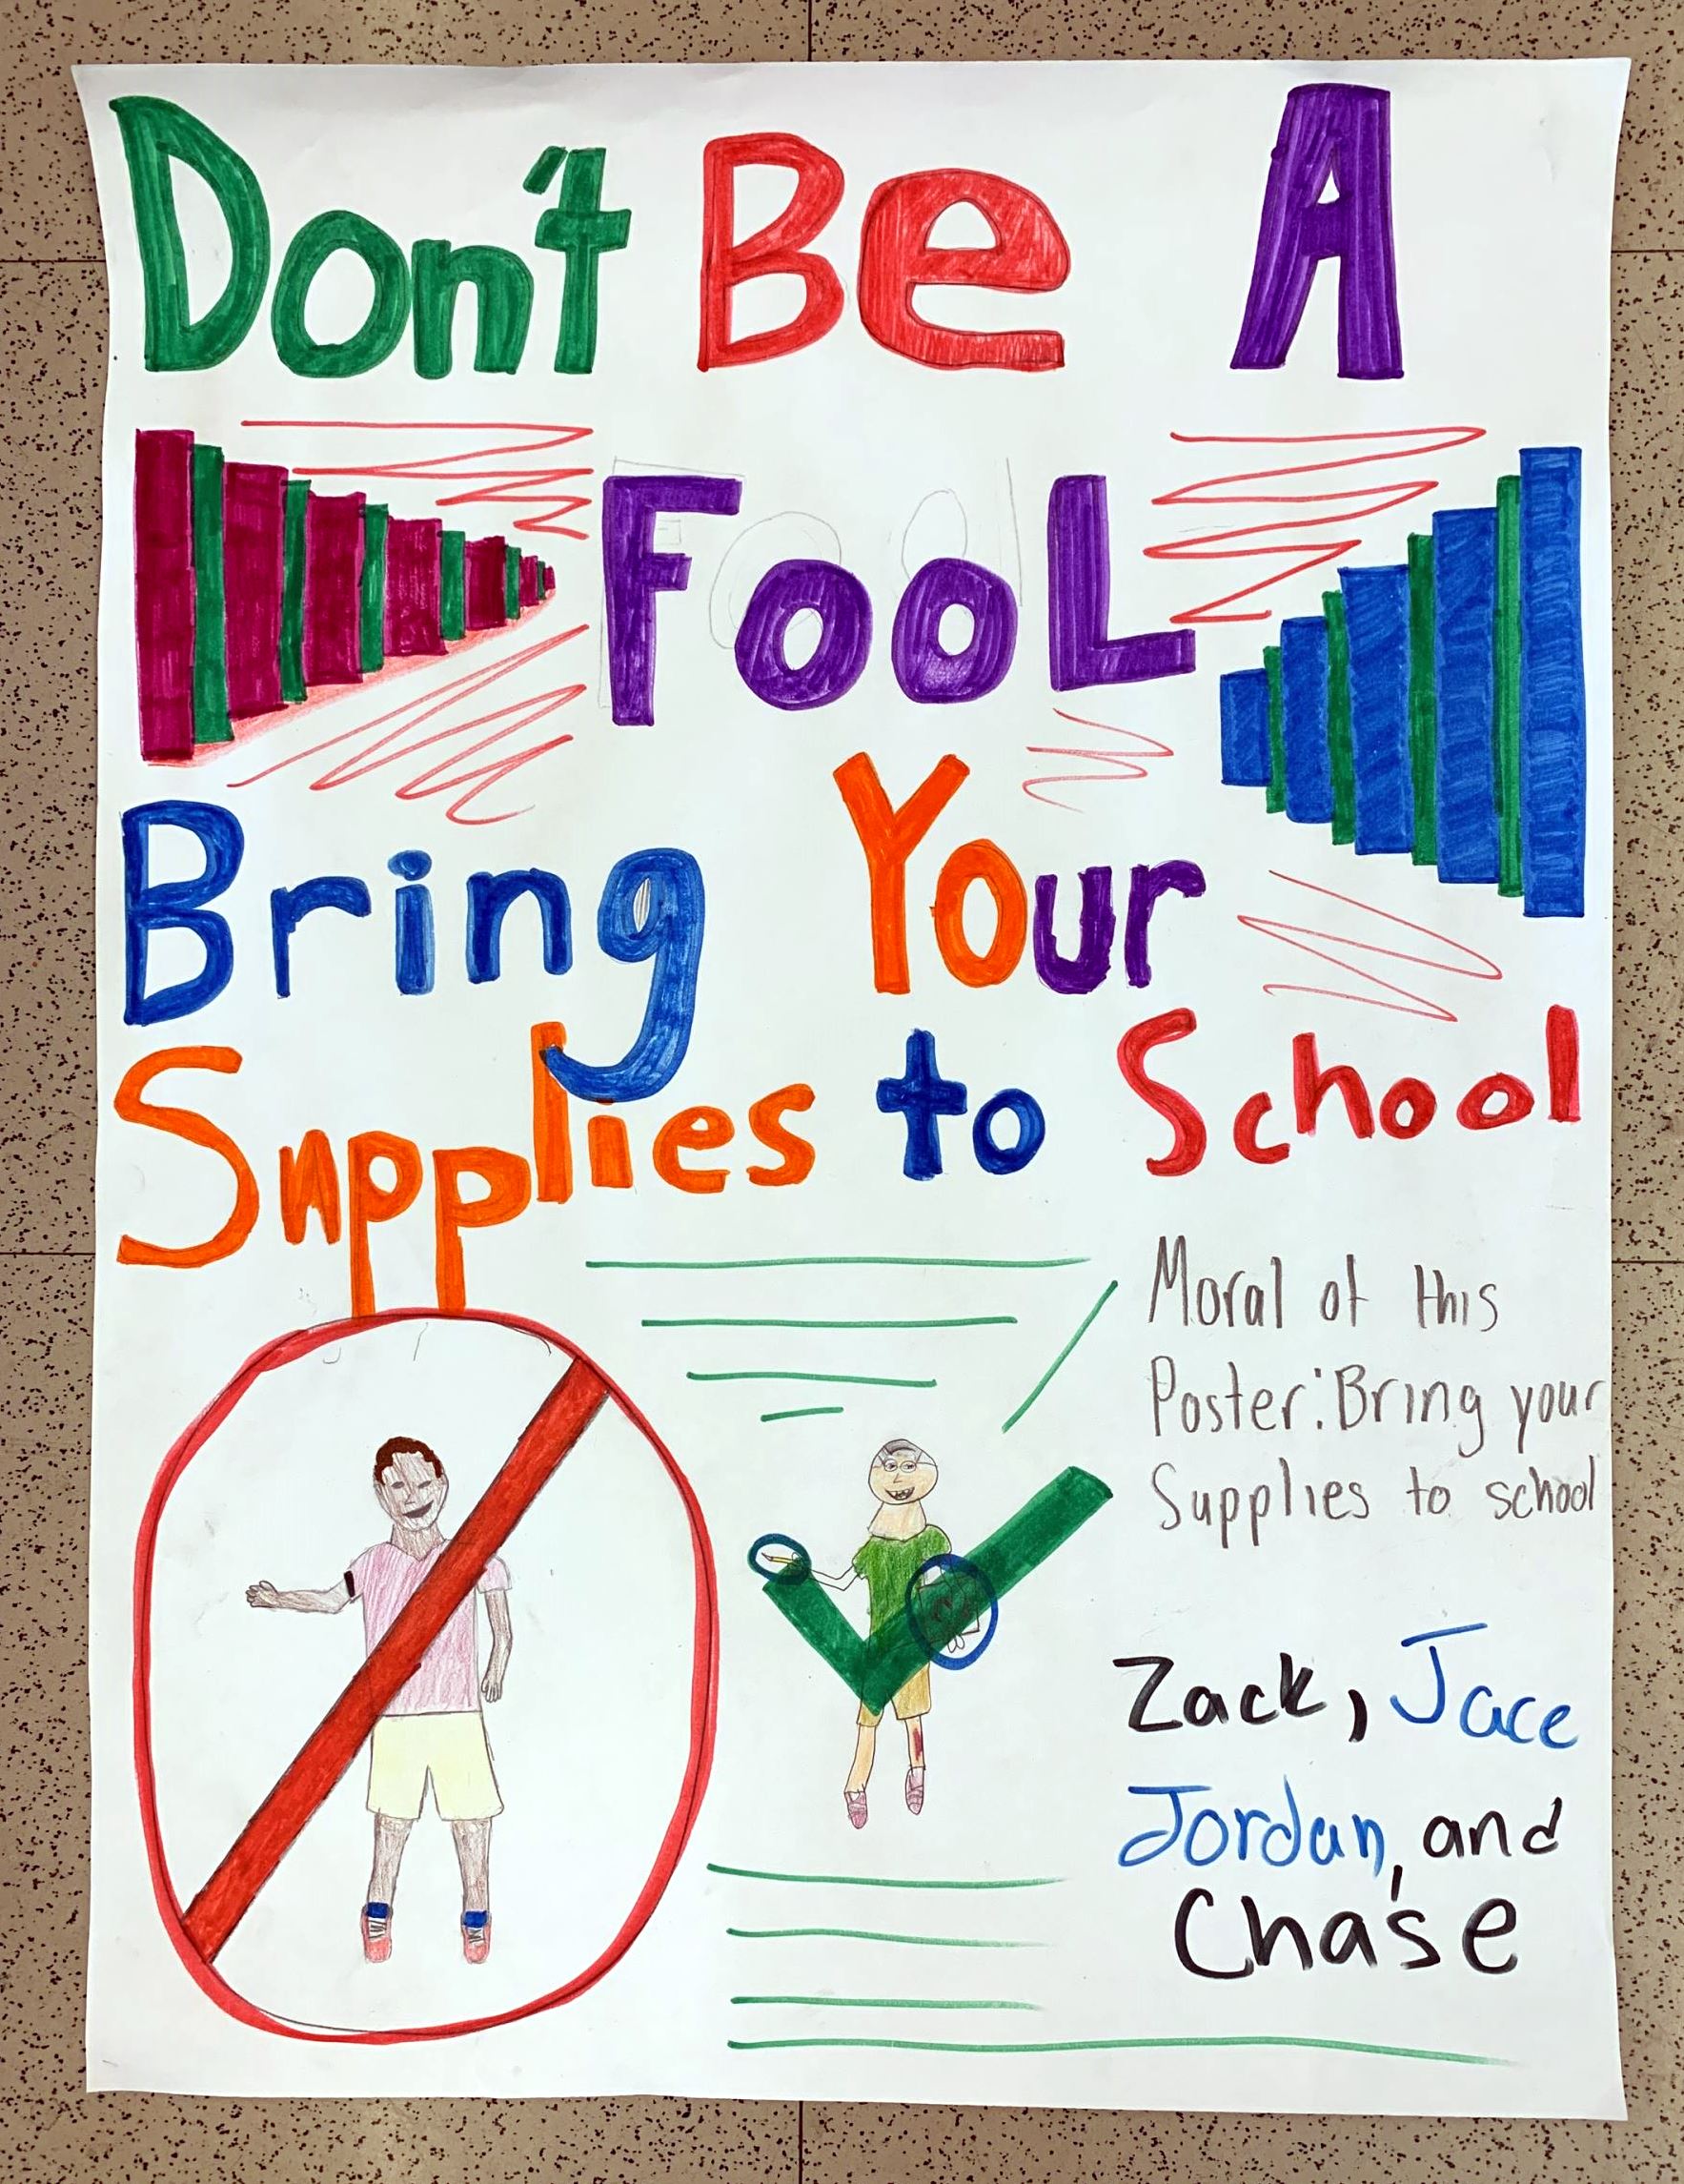 Don't Be A
FooL
Bring Your
Supplies to School
Moral of this
Poster: Bring your
Supplies to school
Zack, Jace
Jordan, and
Chase